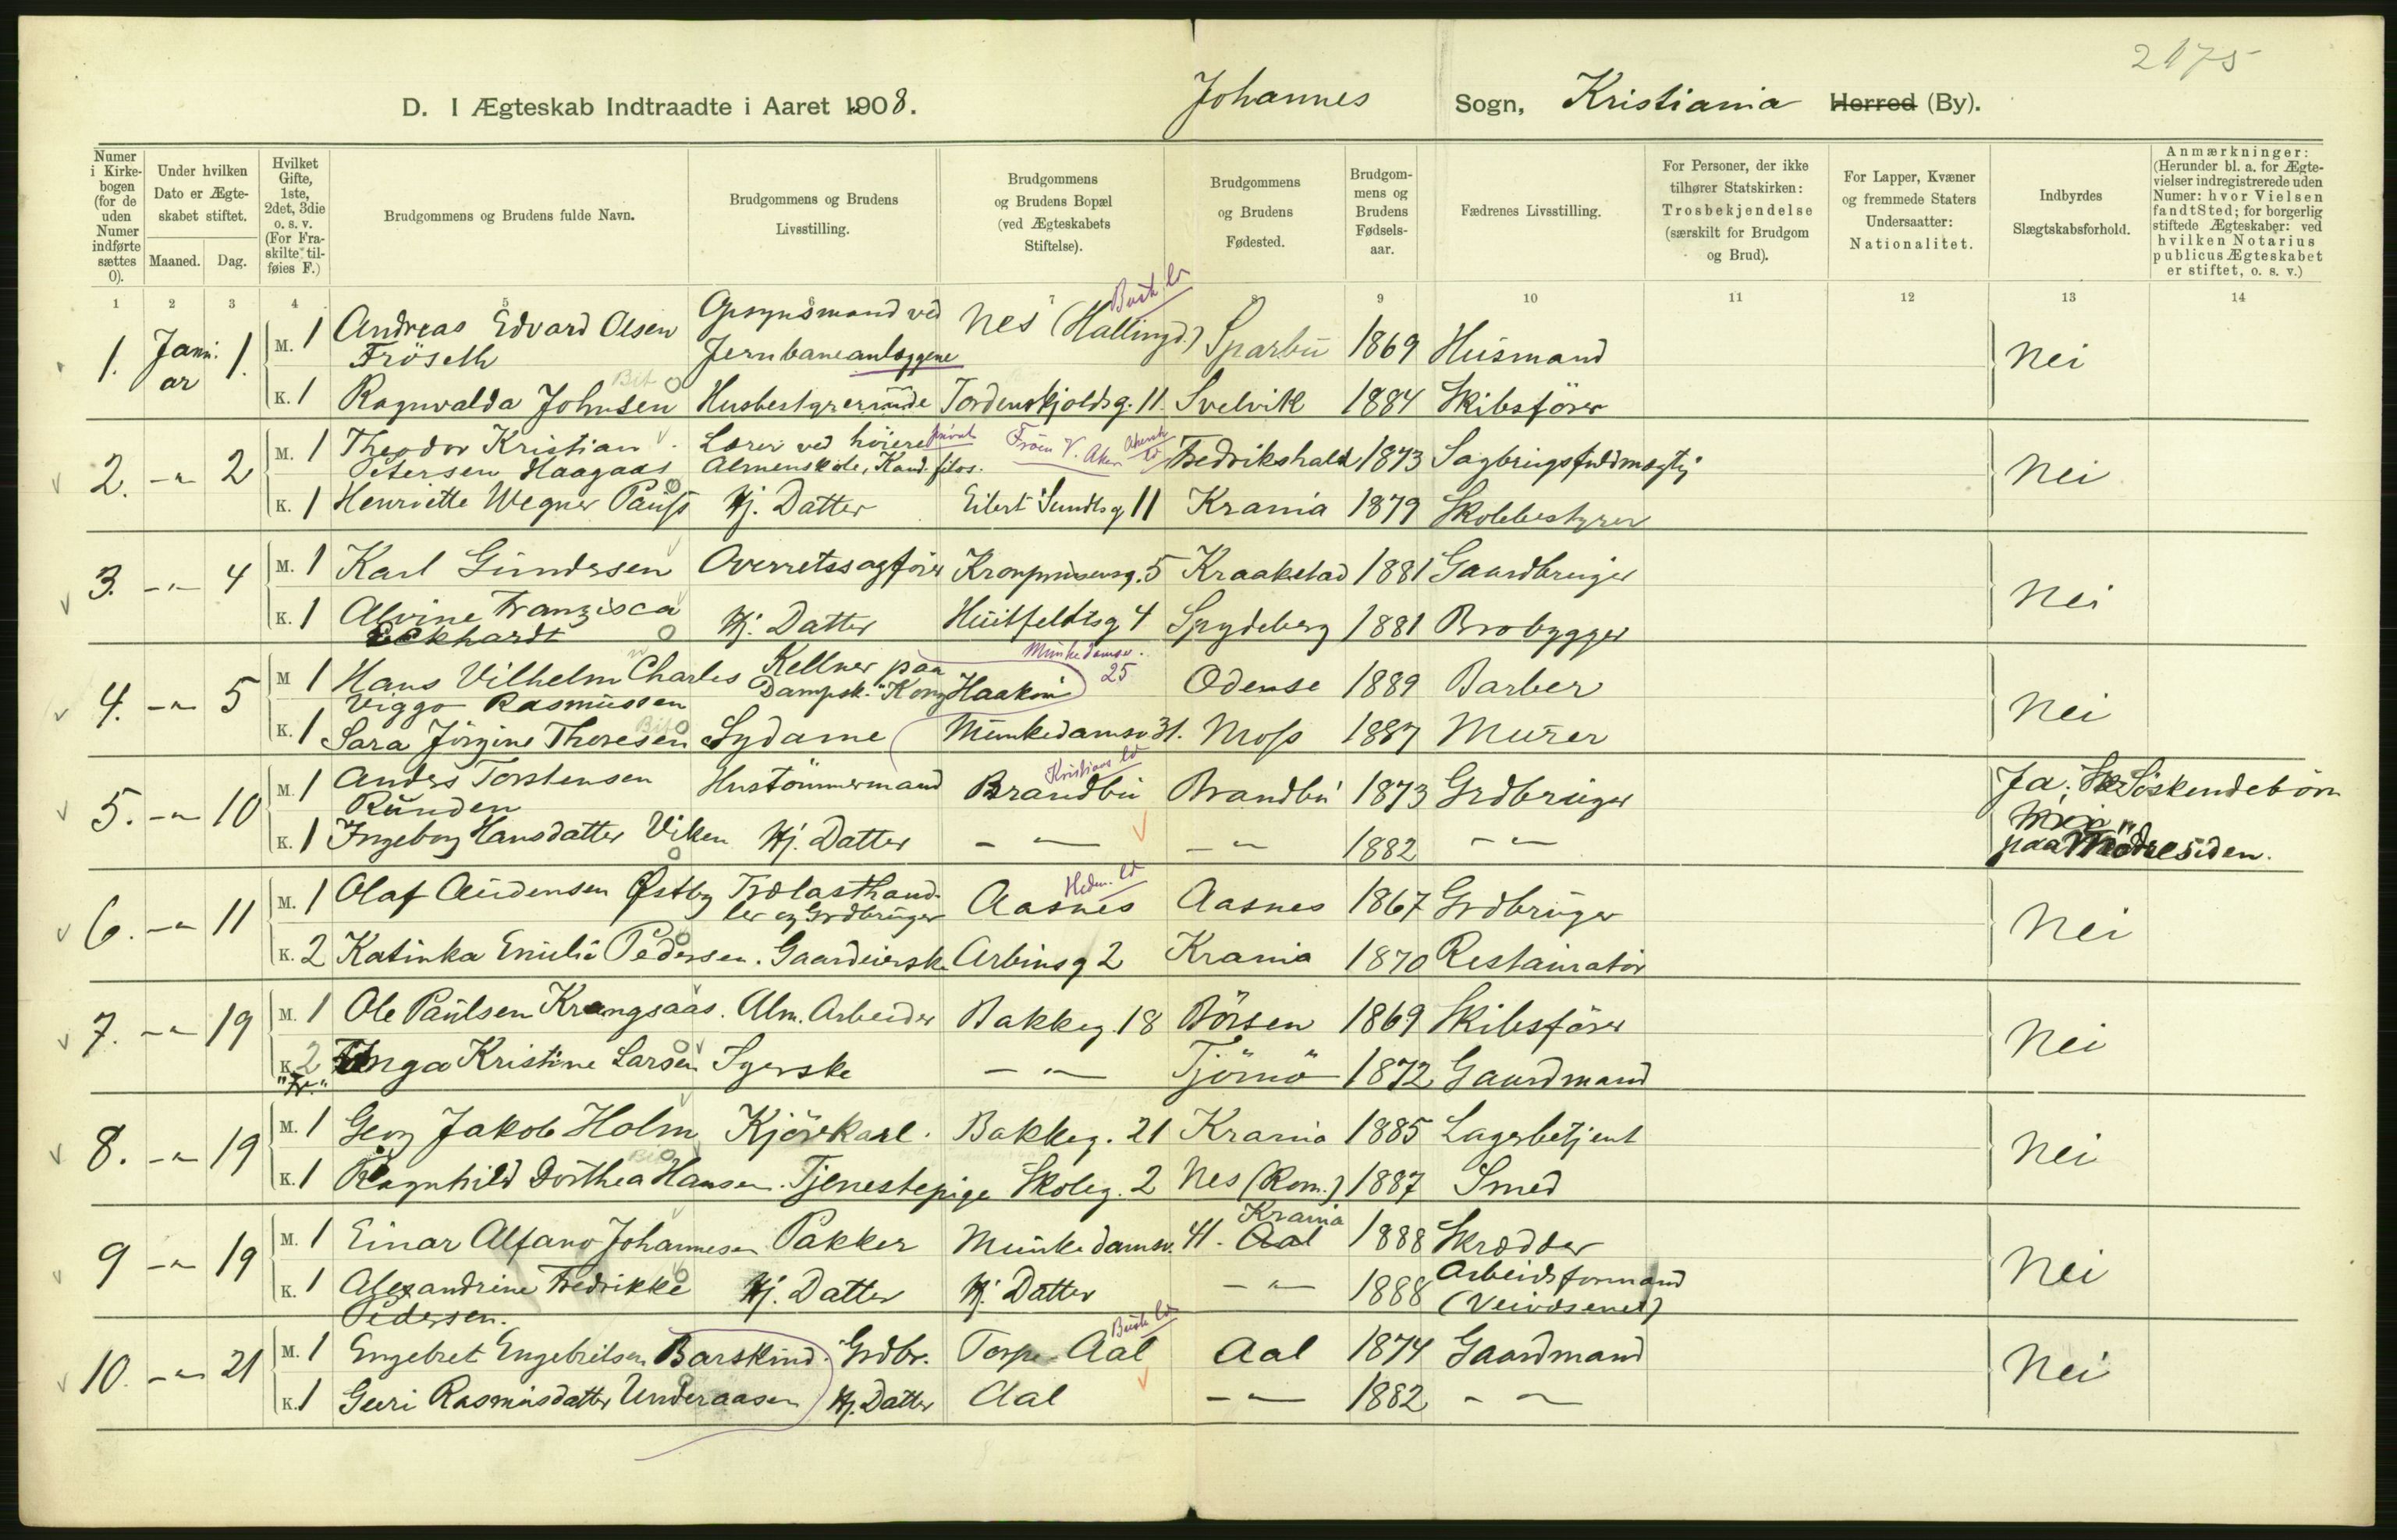 2175
D. I Ægteskab Indtraadte i Aaret 1908. Johannes Sogn, Kristiania Herred (By).
Numer i Kirkebogen (for de uden Numer indførte sættes 0).
Under hvilken Dato er Ægteskabet stiftet.
Maaned. Dag.
Hvilket Gifte, 1ste, 2det, 3die o. s. v. (For Fraskilte tilføies F.)
Brudgommens og Brudens fulde Navn.
Brudgommens og Brudens Livsstilling.
Brudgommens og Brudens Bopæl (ved Ægteskabets Stiftelse).
Brudgommens og Brudens Fødested.
Brudgommens og Brudens Fødselsaar.
Fædrenes Livsstilling.
For Personer, der ikke tilhører Statskirken: Trosbekjendelse (særskilt for Brudgom og Brud).
For Lapper, Kvæner og fremmede Staters Undersaatter: Nationalitet.
Indbyrdes Slægtskabsforhold.
Anmærkninger: (Herunder bl. a. for Ægtevielser indregistrerede uden Numer: hvor Vielsen fandt Sted; for borgerlig stiftede Ægteskaber: ved hvilken Notarius publicus Ægteskabet er stiftet, o. s. v.)
1 2 3 4 5 6 7 8 9 10 11 12 13 14
1. Januar 1. M. 1 Andreas Edvard Olsen Fröseth Opsynsmand ved Jernbaneanlæggene Nes (Hallingd.) Busk. Sparbu 1869 Husmand Nei
K. 1 Ragnvalda Johnsen Husbestyrerinde Tordenskjoldsg. 11. Svelvik 1884 Skibsförer
2. -"- 2 M. 1 Theodor Kristian Petersen Haagaas Lærer ved höiere privat Almenskole, Kand. filos. Fröen V. Aker Fredrikshald 1873 Sagbrugsfuldmægtig Nei
K. 1 Henriette Wegner Pauss Hj. Datter Eilert Sundtsg 11 Krania 1879 Skolebestyrer
3. -"- 4 M. 1 Karl Gundersen Overretssagförer Kronprinsensg. 5 Kraakstad 1881 Gaardbruger Nei
K. 1 Alvine Franzisca Eckhardt Hj. Datter Huitfeldtsg 4 Spydeberg 1881 Brobygger
4. -"- 5 M 1 Hans Vilhelm Charles Viggo Rasmussen Kellner paa Dampsk. "Kong Haakon" Munkedamsv. 25 Odense 1889 Barber Nei
K. 1 Sara Jörgine Thoresen Sydame Munkedamsv. 31. Moss 1887 Murer
5. -"- 10 M. 1 Anders Torstensen Runden Hustömmermand Brandbu Kristians Brandbu 1873 Grdbruger Ja; Söskendebörn paa Mödresiden.
K. 1 Ingeborg Hansdatter Viken Hj. Datter -"- -"- 1882 -"-
6. -"- 11 M. 1 Olaf Audensen Østby Trælasthandler og Grdbruger Aasnes Hedm. Aasnes 1867 Grdbruger Nei
K. 2 Katinka Emilie Pedersen. Gaardeierske Arbinsg 2 Krania 1870 Restauratör
7. -"- 19 M. 1 Ole Paulsen Krangsaas. Alm. Arbeider Bakkeg. 18 Börsen 1869 Skibsförer Nei
K. 2 "Fr." Inga Kristine Larsen Syerske -"- Tjömö 1872 Gaardmand
8. -"- 19 M. 1 Georg Jakob Holm Kjörekarl. Bakkeg. 21 Krania 1885 Lagerbetjent Nei
K. 1 Ragnhild Dorthea Hansen. Tjenestepige Skoleg. 2 Nes (Rom.) 1887 Smed
9 -"- 19 M. 1 Einar Alfano Johannesen Pakker Munkedamsv. 41. Aal Krania 1888 Skrædder Nei
K. 1 Alexandrine Fredrikke Pedersen. Hj. Datter Hj. Datter -"- 1888 Arbeidsformand (Veivæsenet)
10. -"- 21 M. 1 Engebret Engebretsen Barskind. Grdbr. Torpe Aal Busk. Aal 1874 Gaardmand Nei
K. 1 Guri Rasmusdatter Underaasen Hj. Datter Aal -"- 1882 -"-